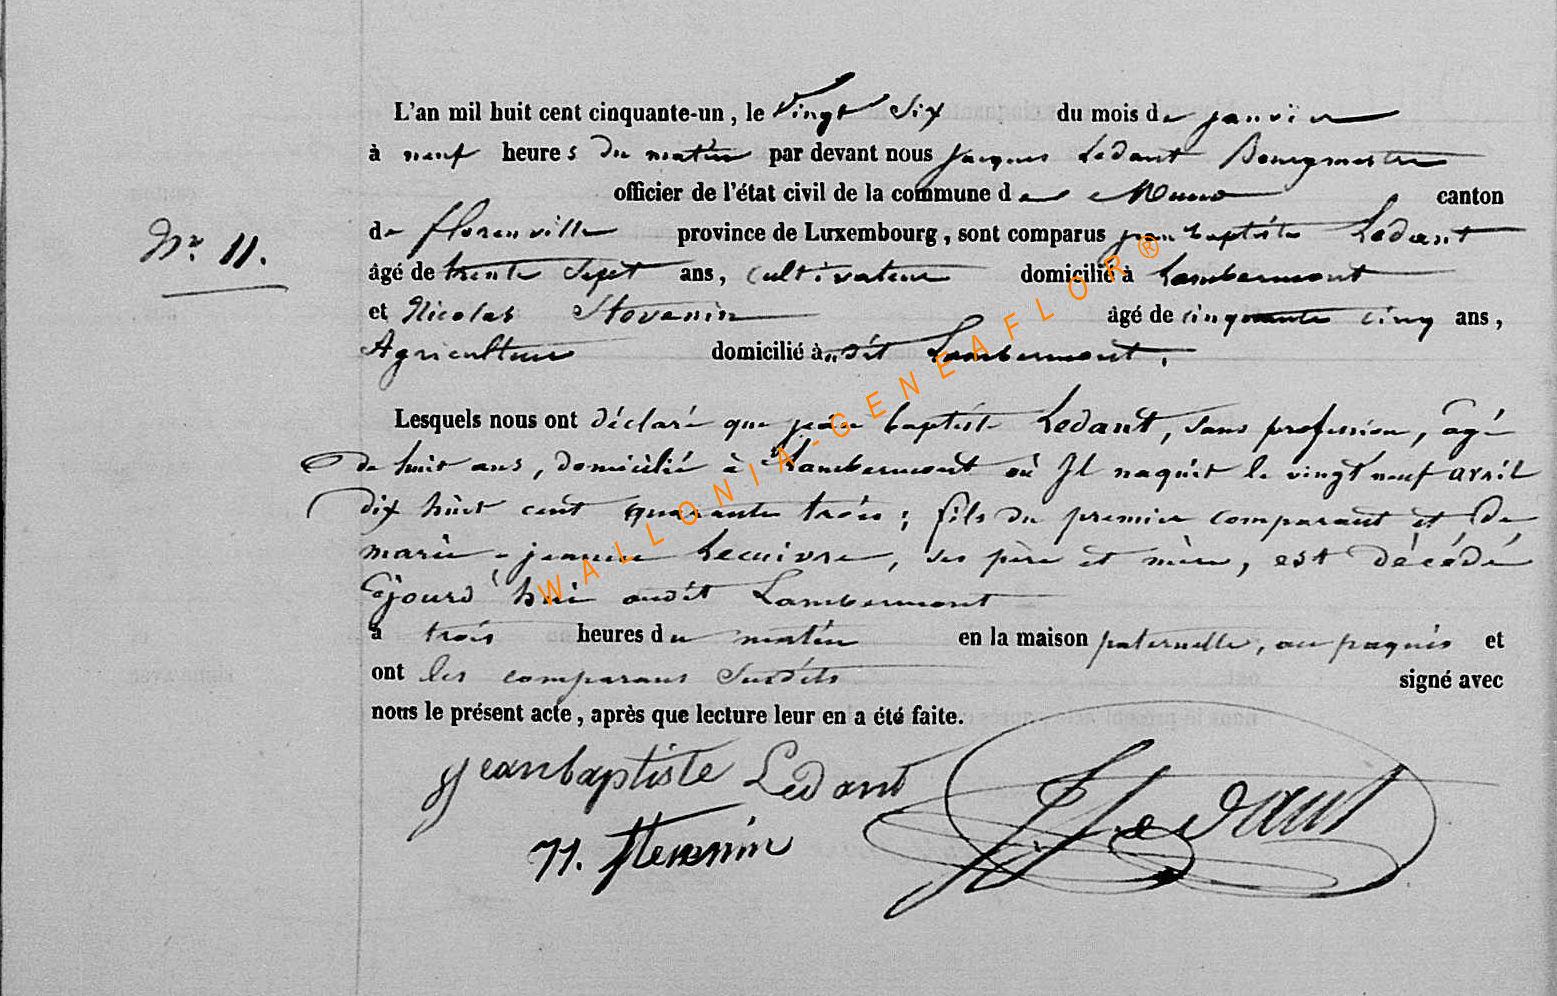 L'an mil huit cent cinquante-un, le vingt Six du mois de janvier
à neuf heures du matin par devant nous jacques Ledant Bourgmestre
officier de l'état civil de la commune de Muno canton
de florenville province de Luxembourg, sont comparus jean baptiste Ledant
Nr. 11.
âgé de trente Sept ans, cultivateur domicilié à Lambermont
et Nicolas Stevenin âgé de cinquante cinq ans,
Agriculteur domicilié à udit Lambermont,
Lesquels nous ont déclaré que jean baptiste Ledant, sans profession, agé
de huit ans, domicilié à Lambermont où Il naquit le vingt neuf avril
dix huit cent quarante trois; fils du premier comparant et de
marie-jeanne Lecuivre, ses père et mère, est décédé
jourd'hui audit Lambermont
à trois heures du matin en la maison paternelle, au paquis et
ont les comparans Susdits signé avec
nous le présent acte, après que lecture leur en a été faite.
jeanbaptiste Ledant
N. Stevenin
J Ledant
WALLONIA-GENEAFLOR®